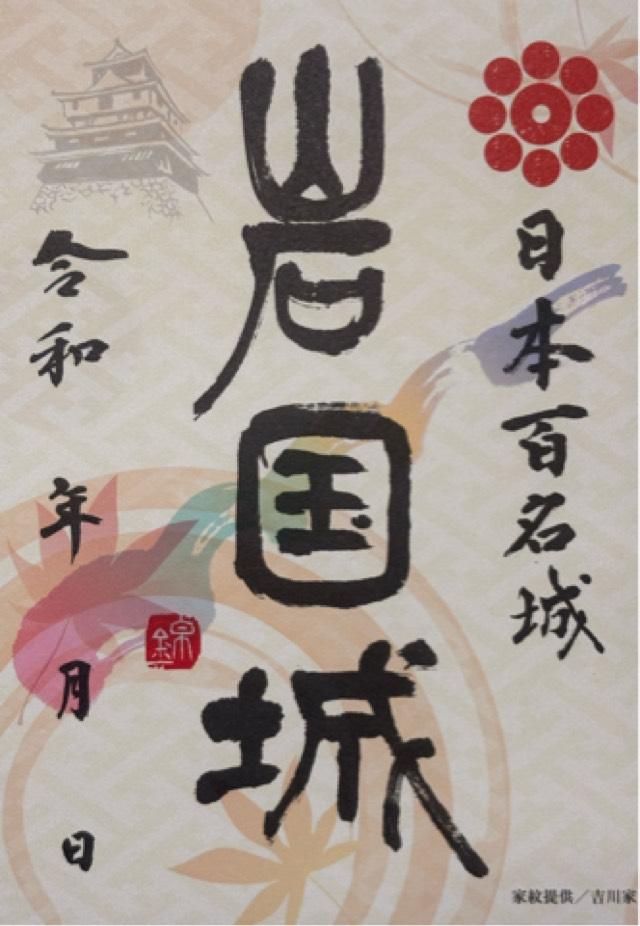 日本百名城
岩国城
令和 年 月 日
家紋提供／吉川家